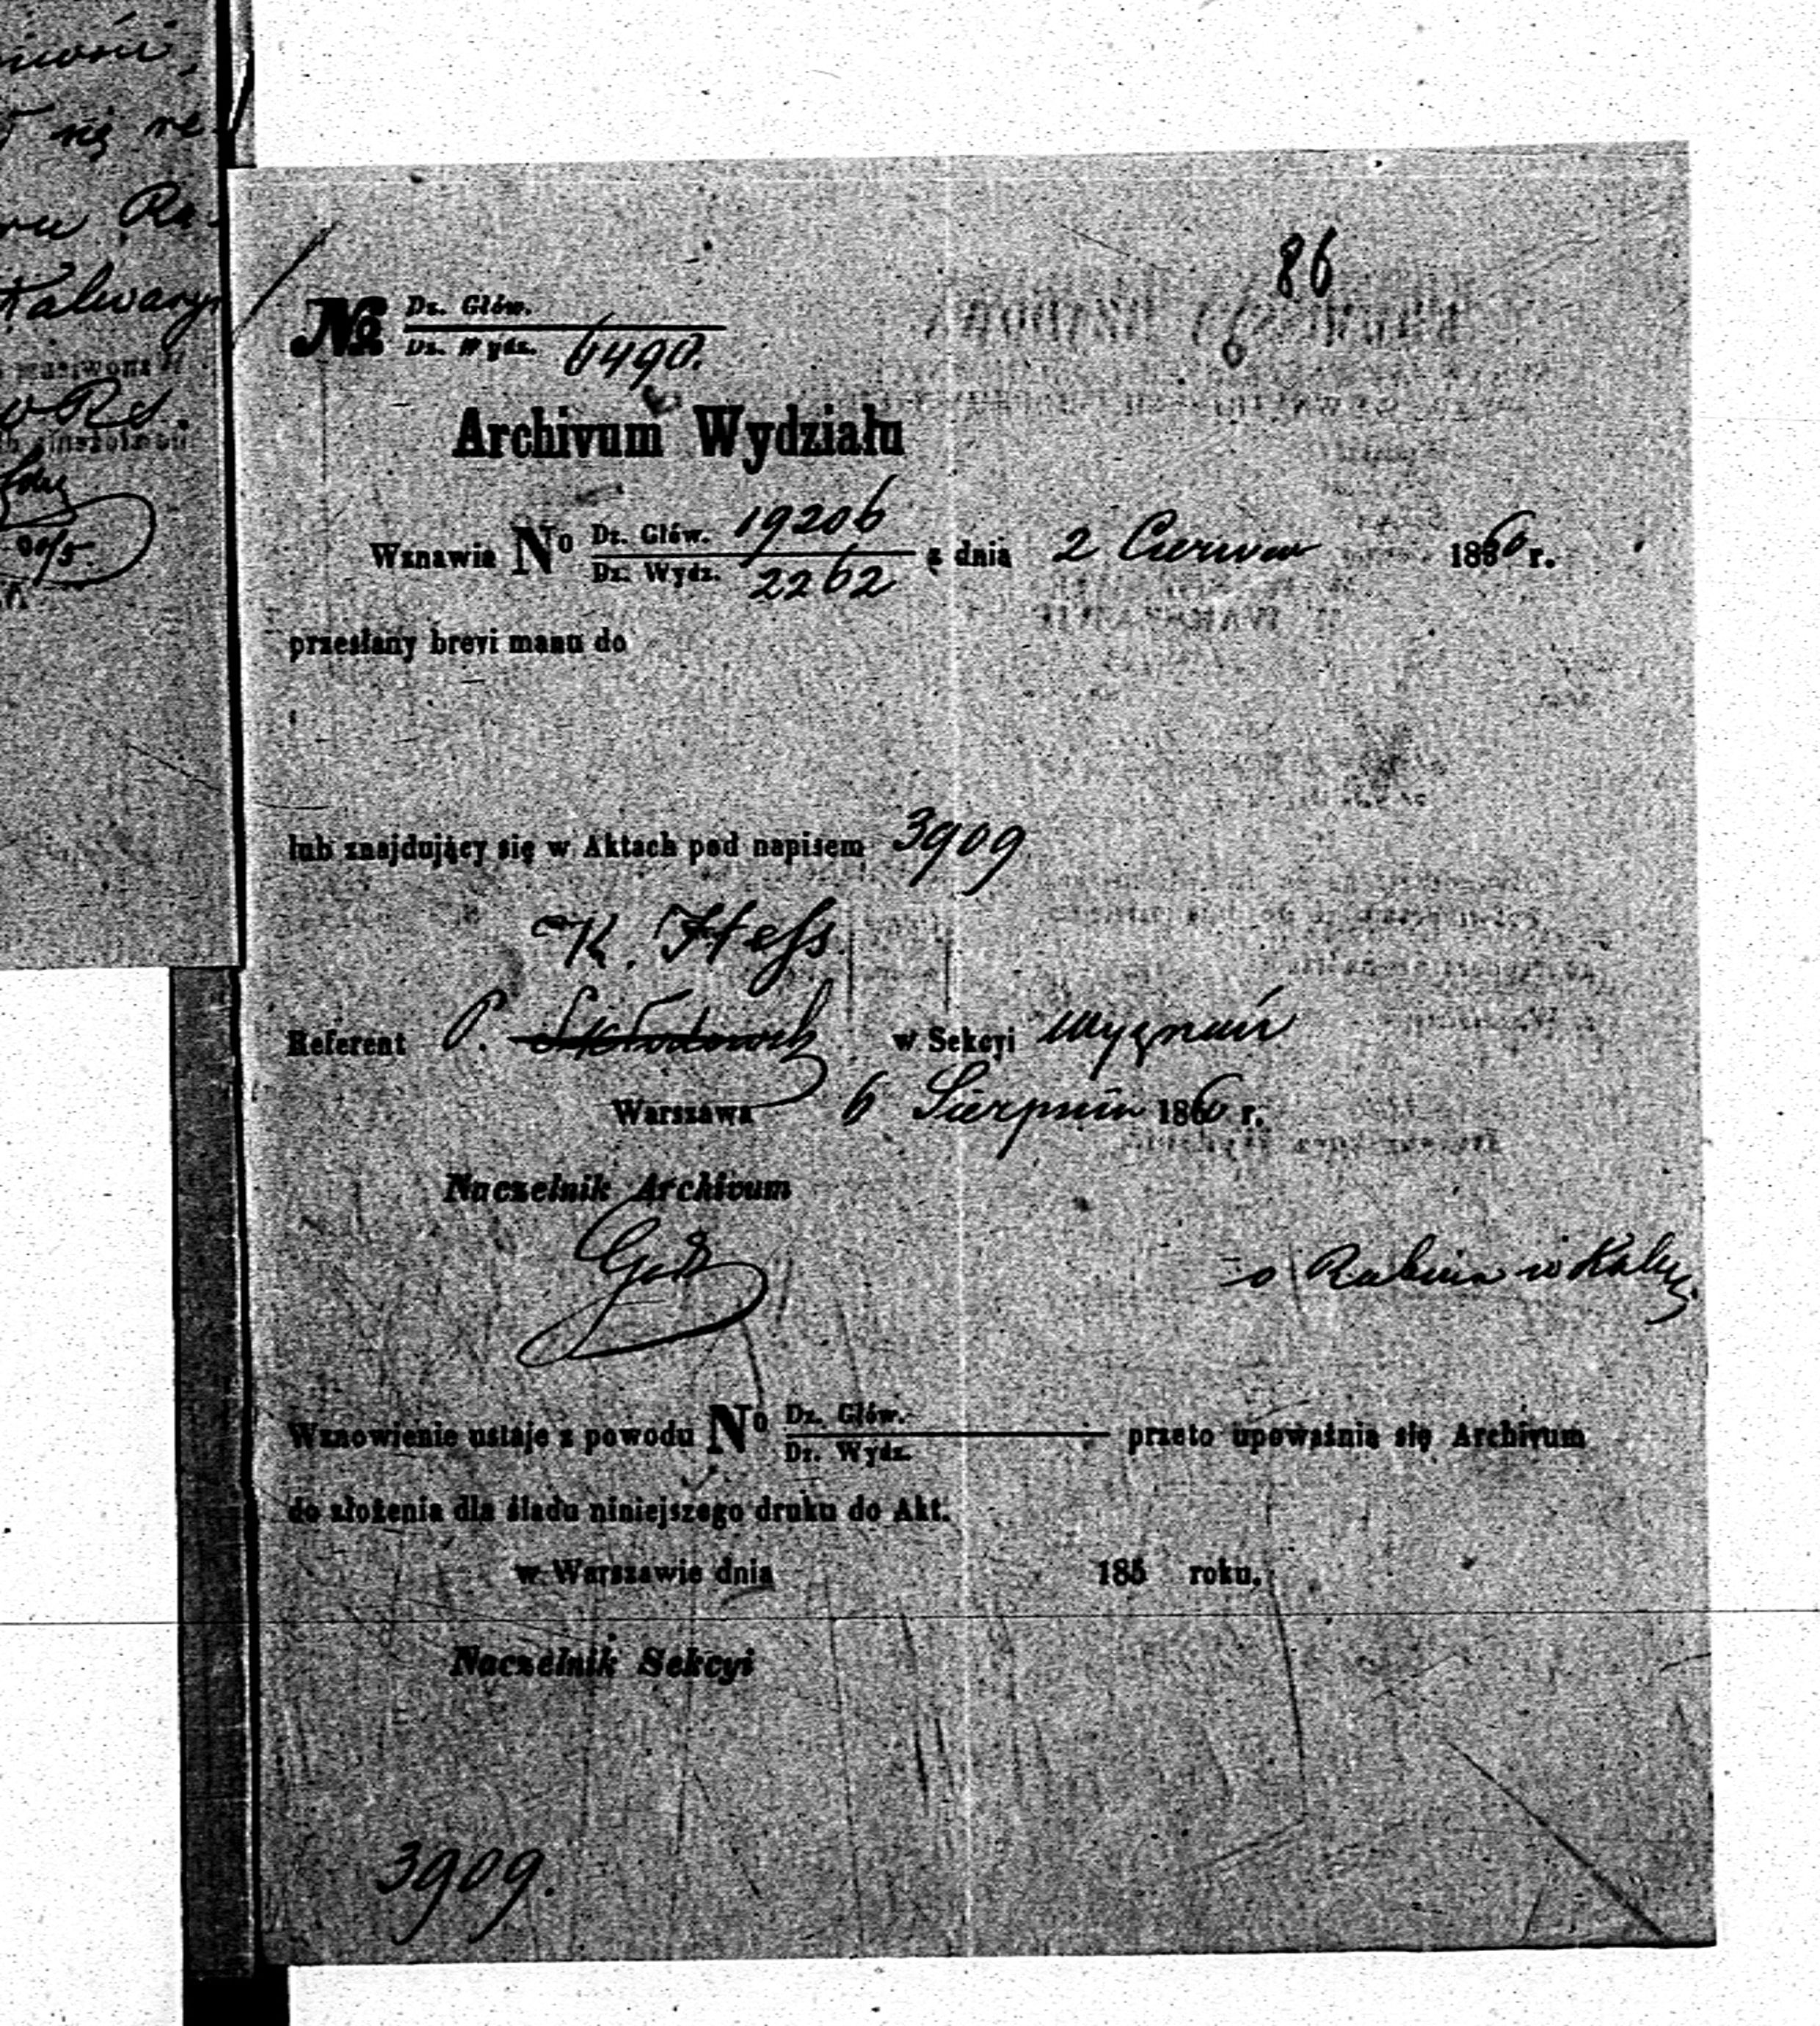 się re-
Ra-
Kalwaryi
86
№ Dz. Głów.
Dz. Wydz. 6490.
Archivum Wydziału
Wznawia No Dz. Głów. 19206
Dz. Wydz. 2262
z dnia 2 Czerwca 1860 r.
przesłany brevi manu do
lub znajdujący się w Aktach pod napisem 3909
K. Hess
Referent P. Skłodowsk w Sekcyi Wyznań
Warszawa 6 Sierpnia 1860 r.
Naczelnik Archivum
o Rabina w Kalw
Wznowienie ustaje z powodu No Dz. Głów.
Dz. Wydz.
przeto upoważnia się Archivum
do złożenia dla śladu niniejszego druku do Akt.
w Warszawie dnia 185 roku.
Naczelnik Sekcyi
3909.